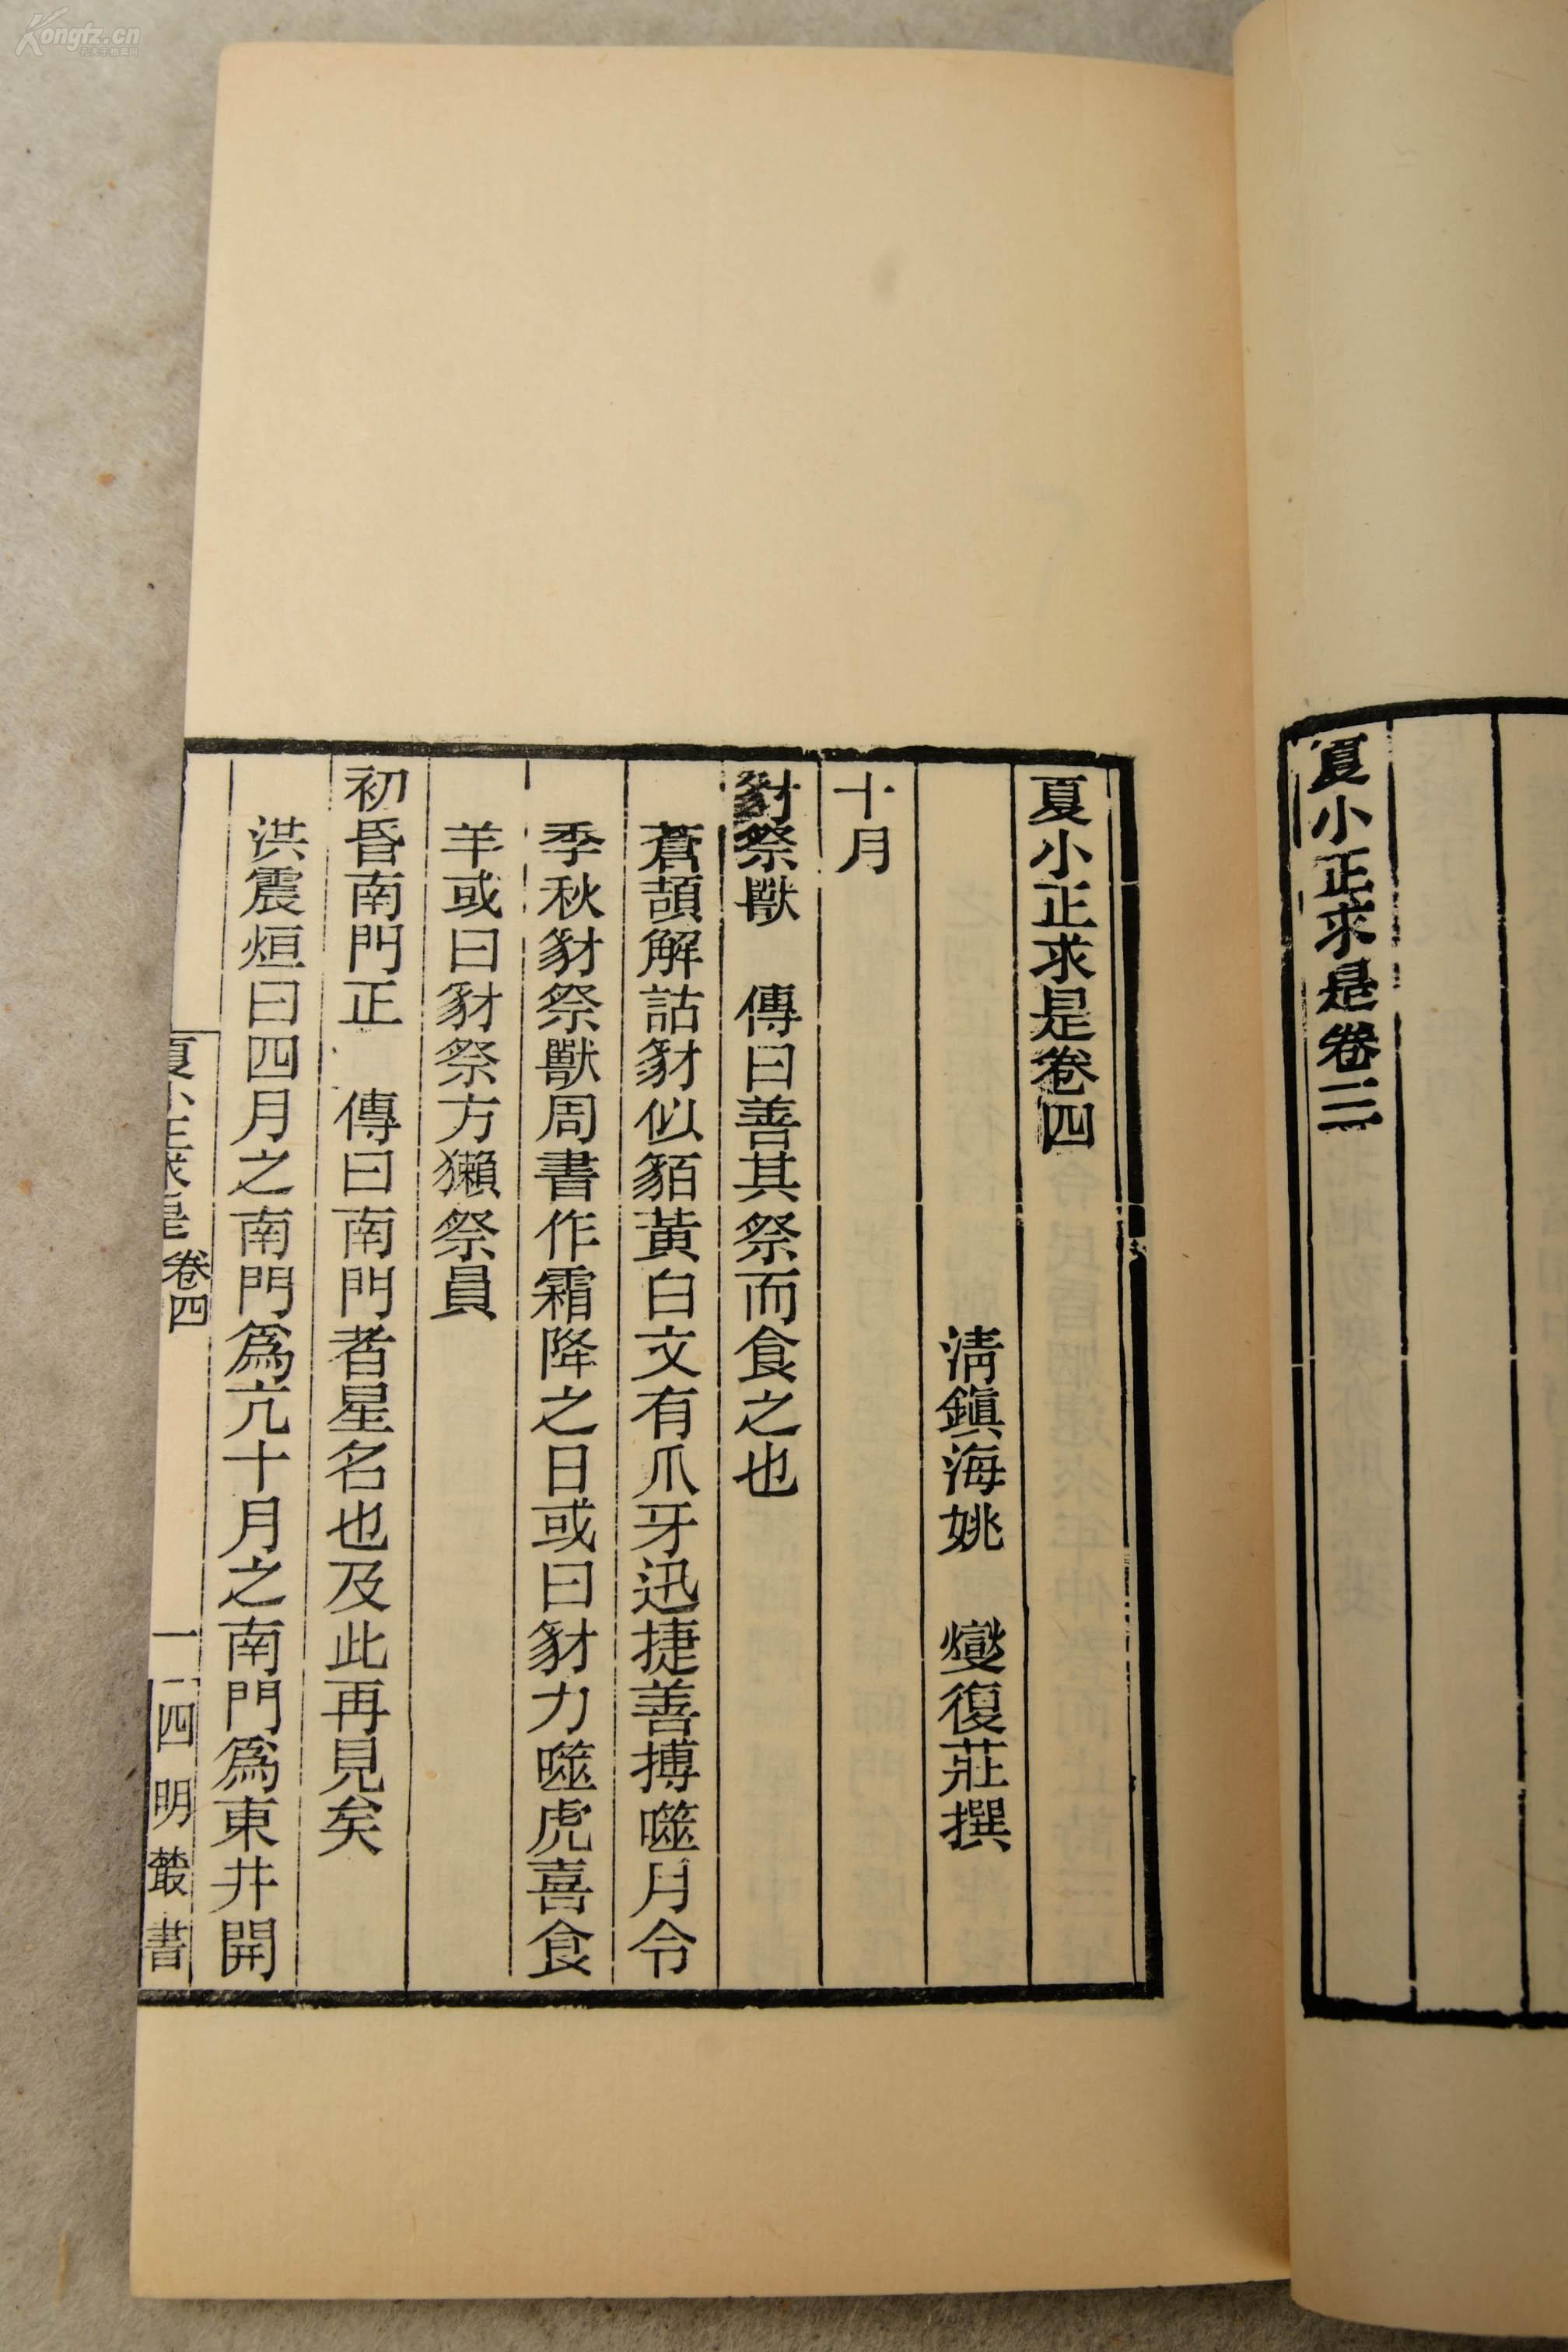 夏小正求是卷三
夏小正求是卷四
清鎮海姚 燮復莊撰
十月
豺祭獸 傳曰善其祭而食之也
蒼頡解詁豺似貊黃白文有爪牙迅捷善搏噬月令
季秋豺祭獸周書作霜降之日或曰豺力噬虎喜食
羊或曰豺祭方獺祭員
初昏南門正 傳曰南門者星名也及此再見矣
洪震烜曰四月之南門爲亢十月之南門爲東井開
夏小正求是 卷四
一 四明叢書
Kongfz.cn